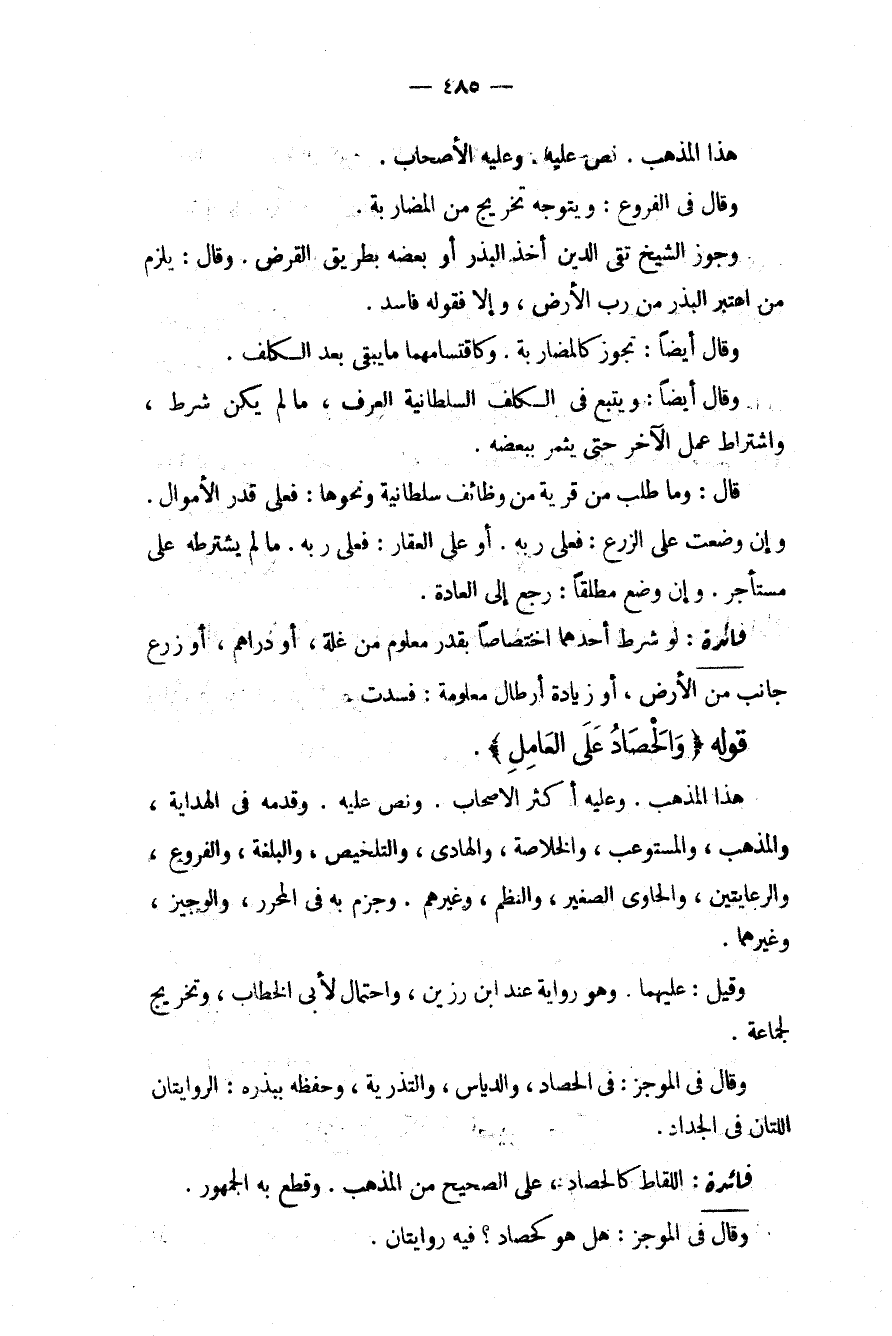 — ٤٨٥ —
هذا المذهب . نص عليه . وعليه الأصحاب .
وقال فى الفروع : ويتوجه تخريج من المضاربة .
وجوز الشيخ تقى الدين أخذ البذر أو بعضه بطريق القرض . وقال : يلزم
من اعتبر البذر من رب الأرض ، وإلا فقوله فاسد .
وقال أيضاً : تجوز كالمضاربة . وكاقتسامهما مايبقى بعد الكلف .
وقال أيضاً : ويتبع فى الكلف السلطانية العرف ، مالم يكن شرط ،
واشتراط عمل الآخر حتى يثمر ببعضه .
قال : وما طلب من قرية من وظائف سلطانية ونحوها : فعلى قدر الأموال .
وإن وضعت على الزرع : فعلى ربه . أو على العقار : فعلى ربه . مالم يشترطه على
مستأجر . وإن وضع مطلقاً : رجع إلى العادة .
فائدة : لو شرط أحدهما اختصاصاً بقدر معلوم من غلة ، أو دراهم ، أو زرع
جانب من الأرض ، أو زيادة أرطال معلومة : فسدت .
قوله ﴿ وَالحَصَادُ عَلَى العَامِلِ ﴾ .
هذا المذهب . وعليه أكثر الاصحاب . ونص عليه . وقدمه فى الهداية ،
والمذهب ، والمستوعب ، والخلاصة ، والهادى ، والتلخيص ، والبلغة ، والفروع ،
والرعايتين ، والحاوى الصغير ، والنظم ، وغيرهم . وجزم به فى المحرر ، والوجيز ،
وغيرهما .
وقيل : عليهما . وهو رواية عند ابن رزين ، واحتمال لأبى الخطاب ، وتخريج
لجماعة .
وقال فى الموجز : فى الحصاد ، والدياس ، والتذرية ، وحفظه ببذره : الروايتان
اللتان فى الجداد .
فائدة : اللقاط كالحصاد ، على الصحيح من المذهب . وقطع به الجمهور .
وقال فى الموجز : هل هو كحصاد ؟ فيه روايتان .